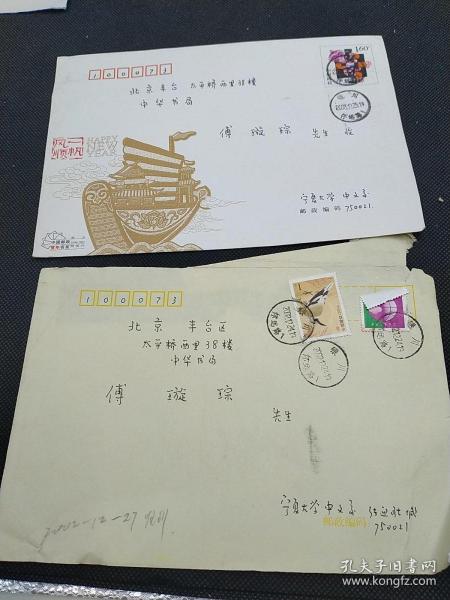 100073
160
北京 丰台 太平桥西里38楼
中华书局
傅 璇 琮 先生 收
一帆风顺
HAPPY NEW YEAR
中国邮政
宁夏大学 中文系
邮政编码 750021
银川
100073
北京 丰台区
太平桥西里38楼
中华书局
傅 璇 琮
先生
银川
银川
宁夏大学中文系
邮政编码
750021
2002-12-27
孔夫子旧书网
www.kongfz.com